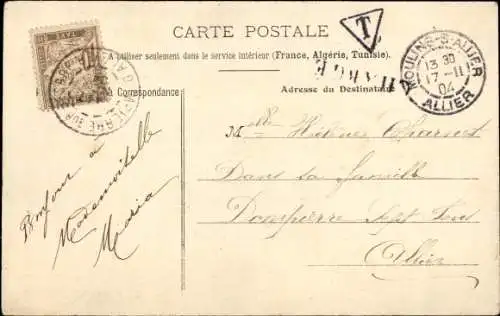 CARTE POSTALE
T
A utiliser seulement dans le service intérieur (France, Algérie, Tunisie).
Correspondance
Adresse du Destinataire
MOULINS-S-ALLIER
13 30
17 - 11
04
ALLIER
Melle Hélène Charnet
Dans sa famille
Dompierre Sept Fons
Allier
Bonjour à
Mademoiselle
Maria